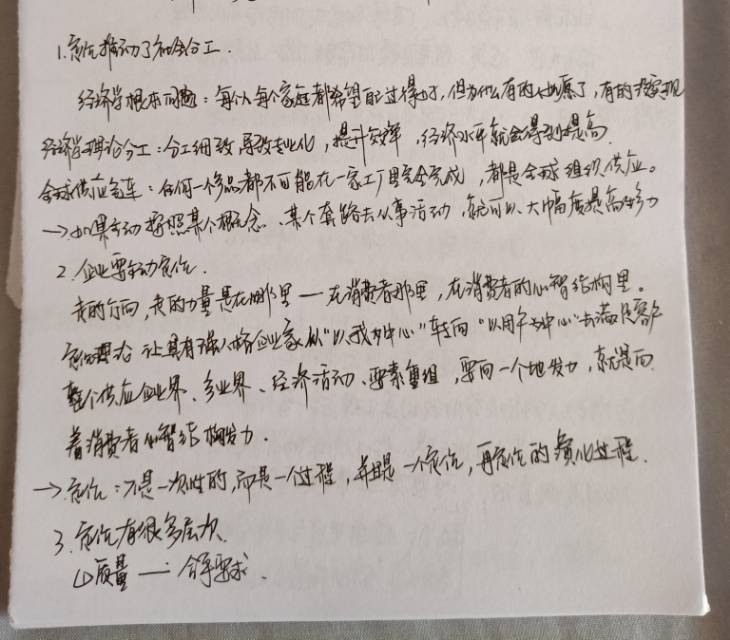 1.定位推动了社会分工.
经济学根本问题：每个人每个家庭都希望能过得好，但为什么有的如愿了，有的没实现
经济学理论分工：分工细致导致专业化，提升效率，经济水平就会得到提高.
全球供应链车：任何一个产品都不可能在一家工厂里完全完成，都是全球组织供应。
→如果主动按照某个概念、某个套路去从事活动，就可以大幅度提高能力
2.企业要主动定位.
走的方向，走的力量是在哪里——在消费者那里，在消费者的心智结构里。
定位理论让具有强人格企业家从"以我为中心"转向"以用户为中心"去满足客户
整个供应企业界、产业界、经济活动、要素重组，要向一个地发力，就是向
着消费者心智结构发力.
→定位：不是一次性的，而是一个过程，并且是一个定位，再定位的演化过程.
3.定位有很多层次.
(1)质量——合乎要求.